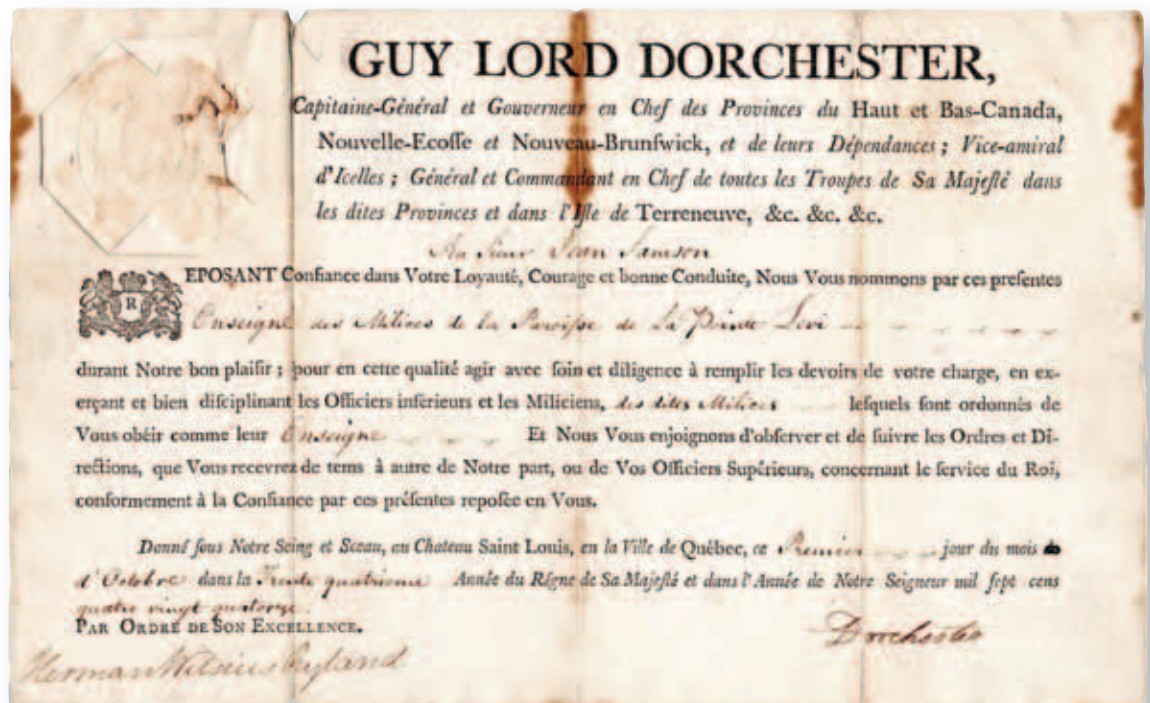 GUY LORD DORCHESTER,
Capitaine-Général et Gouverneur en Chef des Provinces du Haut et Bas-Canada,
Nouvelle-Ecoſſe et Nouveau-Brunſwick, et de leurs Dépendances ; Vice-amiral
d'Icelles ; Général et Commandant en Chef de toutes les Troupes de Sa Majeſté dans
les dites Provinces et dans l'Iſle de Terreneuve, &c. &c. &c.
Au Sieur Jean Samson
R
EPOSANT Confiance dans Votre Loyauté, Courage et bonne Conduite, Nous Vous nommons par ces preſentes
Enseigne des Milices de la Paroisse de La Pointe Levi
durant Notre bon plaiſir ; pour en cette qualité agir avec ſoin et diligence à remplir les devoirs de votre charge, en ex-
erçant et bien diſciplinant les Officiers inférieurs et les Miliciens, des dites Milices leſquels ſont ordonnés de
Vous obéir comme leur Enseigne Et Nous Vous enjoignons d'obſerver et de ſuivre les Ordres et Di-
rections, que Vous recevrez de tems à autre de Notre part, ou de Vos Officiers Supérieurs, concernant le ſervice du Roi,
conformement à la Confiance par ces préſentes repoſée en Vous.
Donné ſous Notre Seing et Sceau, au Chateau Saint Louis, en la Ville de Québec, ce Premier jour du mois
d'Octobre dans la Trente quatrieme Année du Régne de Sa Majeſté et dans l'Année de Notre Seigneur mil ſept cens
quatre vingt quatorze.
PAR ORDRE DE SON EXCELLENCE.
Dorchester
Herman Witsius Ryland